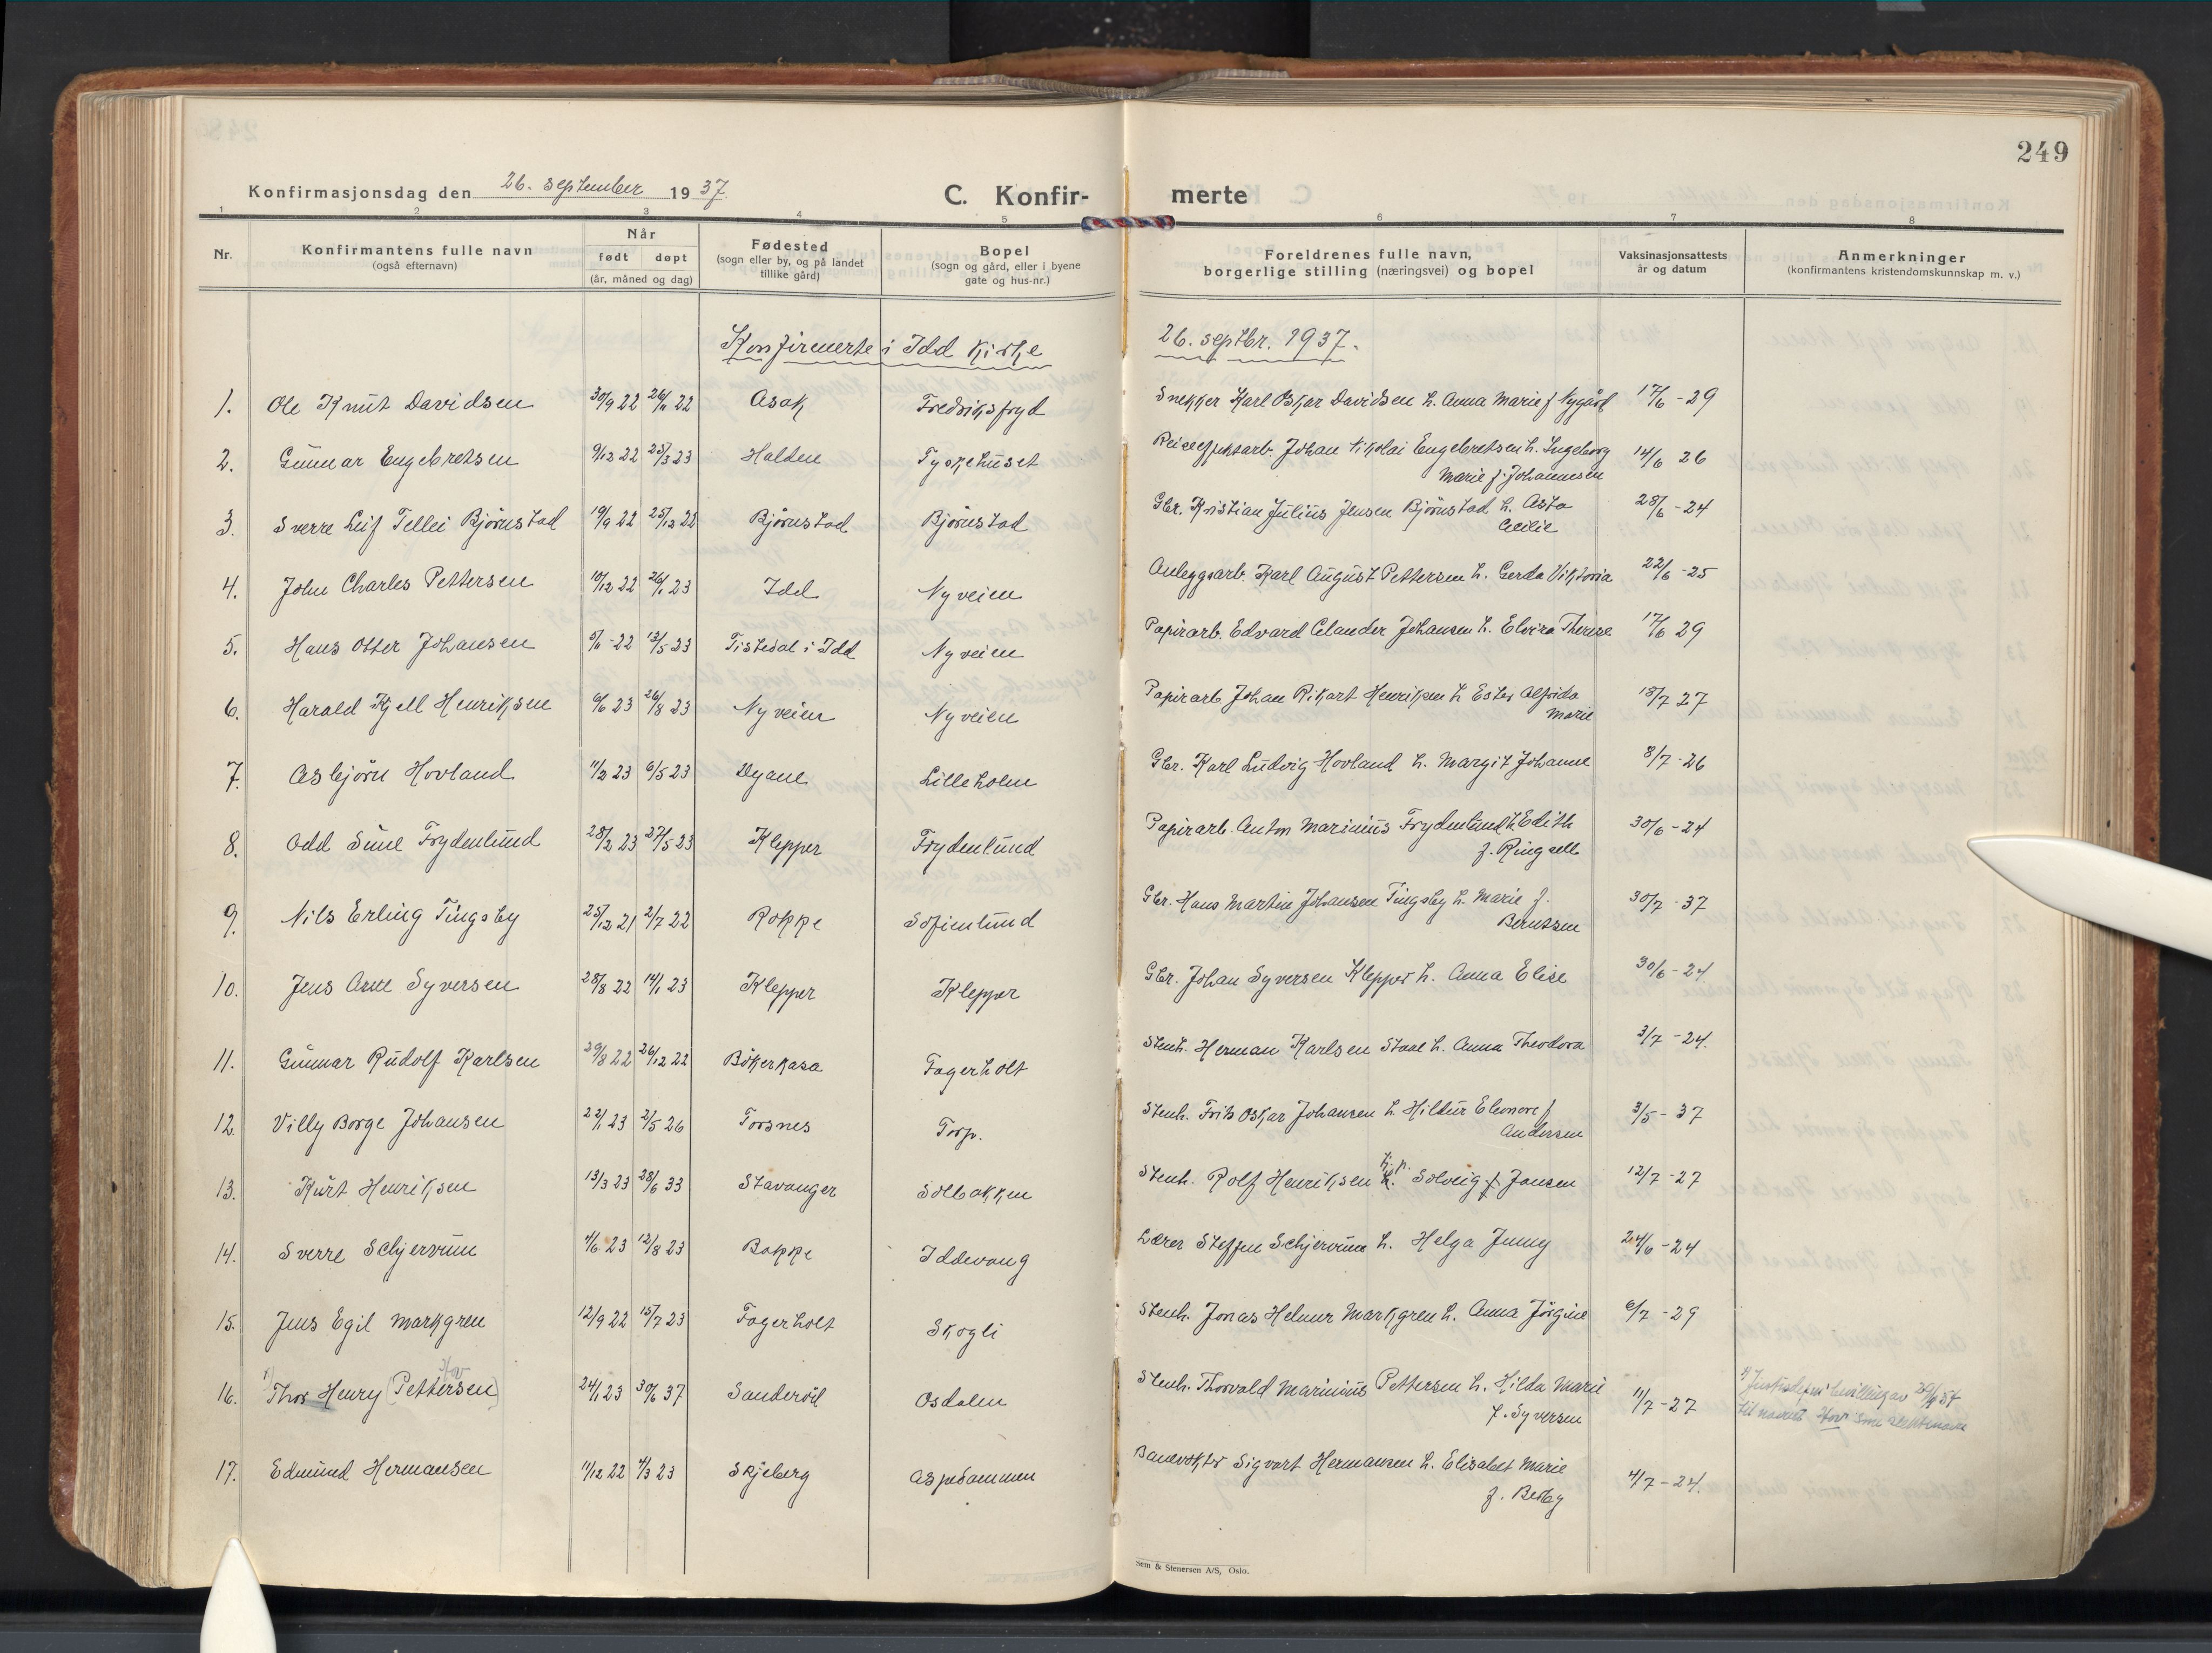 249
Konfirmasjonsdag den 26. september 1937.
C. Konfir-
merte
1 2 3 4 5 6 7 8
Nr.
Konfirmantens fulle navn
(også efternavn)
Når
født døpt
(år, måned og dag)
Fødested
(sogn eller by, og på landet
tillike gård)
Bopel
(sogn og gård, eller i byene
gate og hus-nr.)
Foreldrenes fulle navn,
borgerlige stilling (næringsvei) og bopel
Vaksinasjonsattests
år og datum
Anmerkninger
(konfirmantens kristendomskunnskap m. v.)
Konfirmerte i Idd Kirke 26. septbr. 1937.
1. Ole Knut Davidsen 30/9 22 26/11 22 Asak Fredriksfryd Snekker Karl Oskar Davidsen h. Anna Marie f Nygård 17/6 - 29
2. Gunnar Engebretsen 9/12 22 25/3 23 Halden Tyskehuset Johan Nikolai Engebretsen h. Ingeborg 14/6 26
Marie f. Johannesen
3. Sverre Leif Tellei Bjørnstad 19/9 22 25/12 22 Bjørnstad Bjørnstad Gbr. Kristian Julius Jensen Bjørnstad h. Asta 28/6 - 24
Cecilie
4. John Charles Pettersen 10/12 22 26/1 23 Idd Nyveien Anleggsarb. Karl August Pettersen h. Gerda Viktoria 22/6 - 25
5. Hans Otter Johansen 22 13/5 23 Tistedal i Idd Nyveien Papirarb. Edvard Celander Johansen h. Elvira Therese 17/6 29
6. Harald Kjell Henriksen 6/6 23 26/8 23 Nyveien Nyveien Papirarb Johan Rikart Henriksen h Ester Alfrida 18/7 27
Marie
7. Asbjørn Hovland 11/2 23 6/5 23 Dyane Lilleholm Gbr. Karl Ludvig Hovland h. Margit Johanne 8/7 - 26
8. Odd Sune Frydenlund 28/2 23 27/5 23 Klepper Frydenlund Papirarb. Anton Marinius Frydenlund h Edith 30/6 - 24
f. Ringsell
9. Nils Erling Tingsby 25/12 21 2/7 22 Rokke Sofienlund Gbr. Hans Martin Johansen Tingsby h. Marie f. 30/7 - 37
Berntsen
10. Jens Arne Syversen 28/8 22 14/1 23 Klepper Klepper Gbr. Johan Syversen Klepper h. Anna Elise 30/6 - 24
11. Gunnar Rudolf Karlsen 29/8 22 26/12 22 Bökerkasa Fagerholt Stenh. Herman Karlsen Staal h. Anna Theodora 3/7 - 24.
12. Villy Borge Johansen 22/1 23 2/5 26 Torsnes Torp. Stenh. Frits Oskar Johansen h Hildur Eleonore f 3/5 - 37
Andersen
13. Kurt Henriksen 13/3 23 28/6 33 Stavanger Solbakken Stenh. Rolf Henriksen h. Solveig f Jansen 12/7 - 27
14. Sverre Schjervum 4/6 23 12/8 23 Bakke Iddevang Lærer Steffen Schjervum h. Helga Jenny 24/6 - 24
15. Jens Egil Markgren 12/9 22 15/7 23 Fagerholt Skogli Stenh. Jonas Helmer Markgren h. Anna Jörgine 6/7 - 29
Hov
16. Thor Henry (Pettersen) 24/1 23 30/6 37 Sanderöd Osdalen Stenh. Thorvald Marinius Pettersen h. Hilda Marie 11/7 - 27
f. Syversen
til navnet Hov som slektsnavn
17. Edmund Hermansen 11/12 22 4/3 23 Skjeberg Aspedammen Banevokter Sigvart Hermansen h. Elisabet Marie 4/7 - 24.
f. Berby
Sem & Stenersen A/S, Oslo.